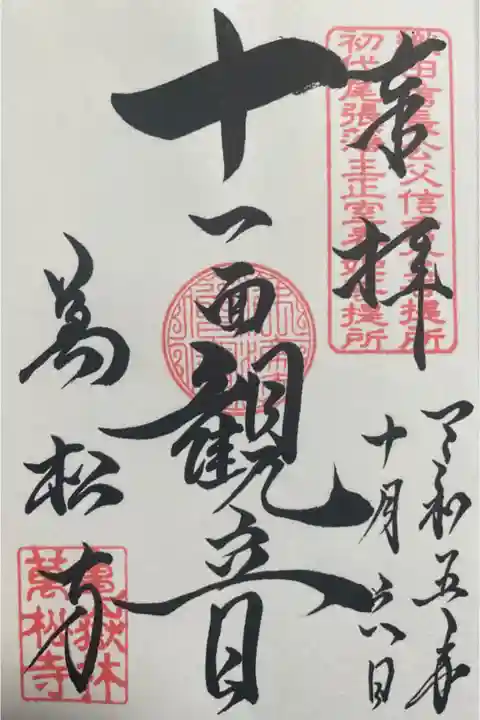 奉拝
令和五年
十月六日
十一面観音
萬松寺
織田信長公父信秀公菩提所
初代尾張藩主正室春姫菩提所
亀嶽林
萬松寺